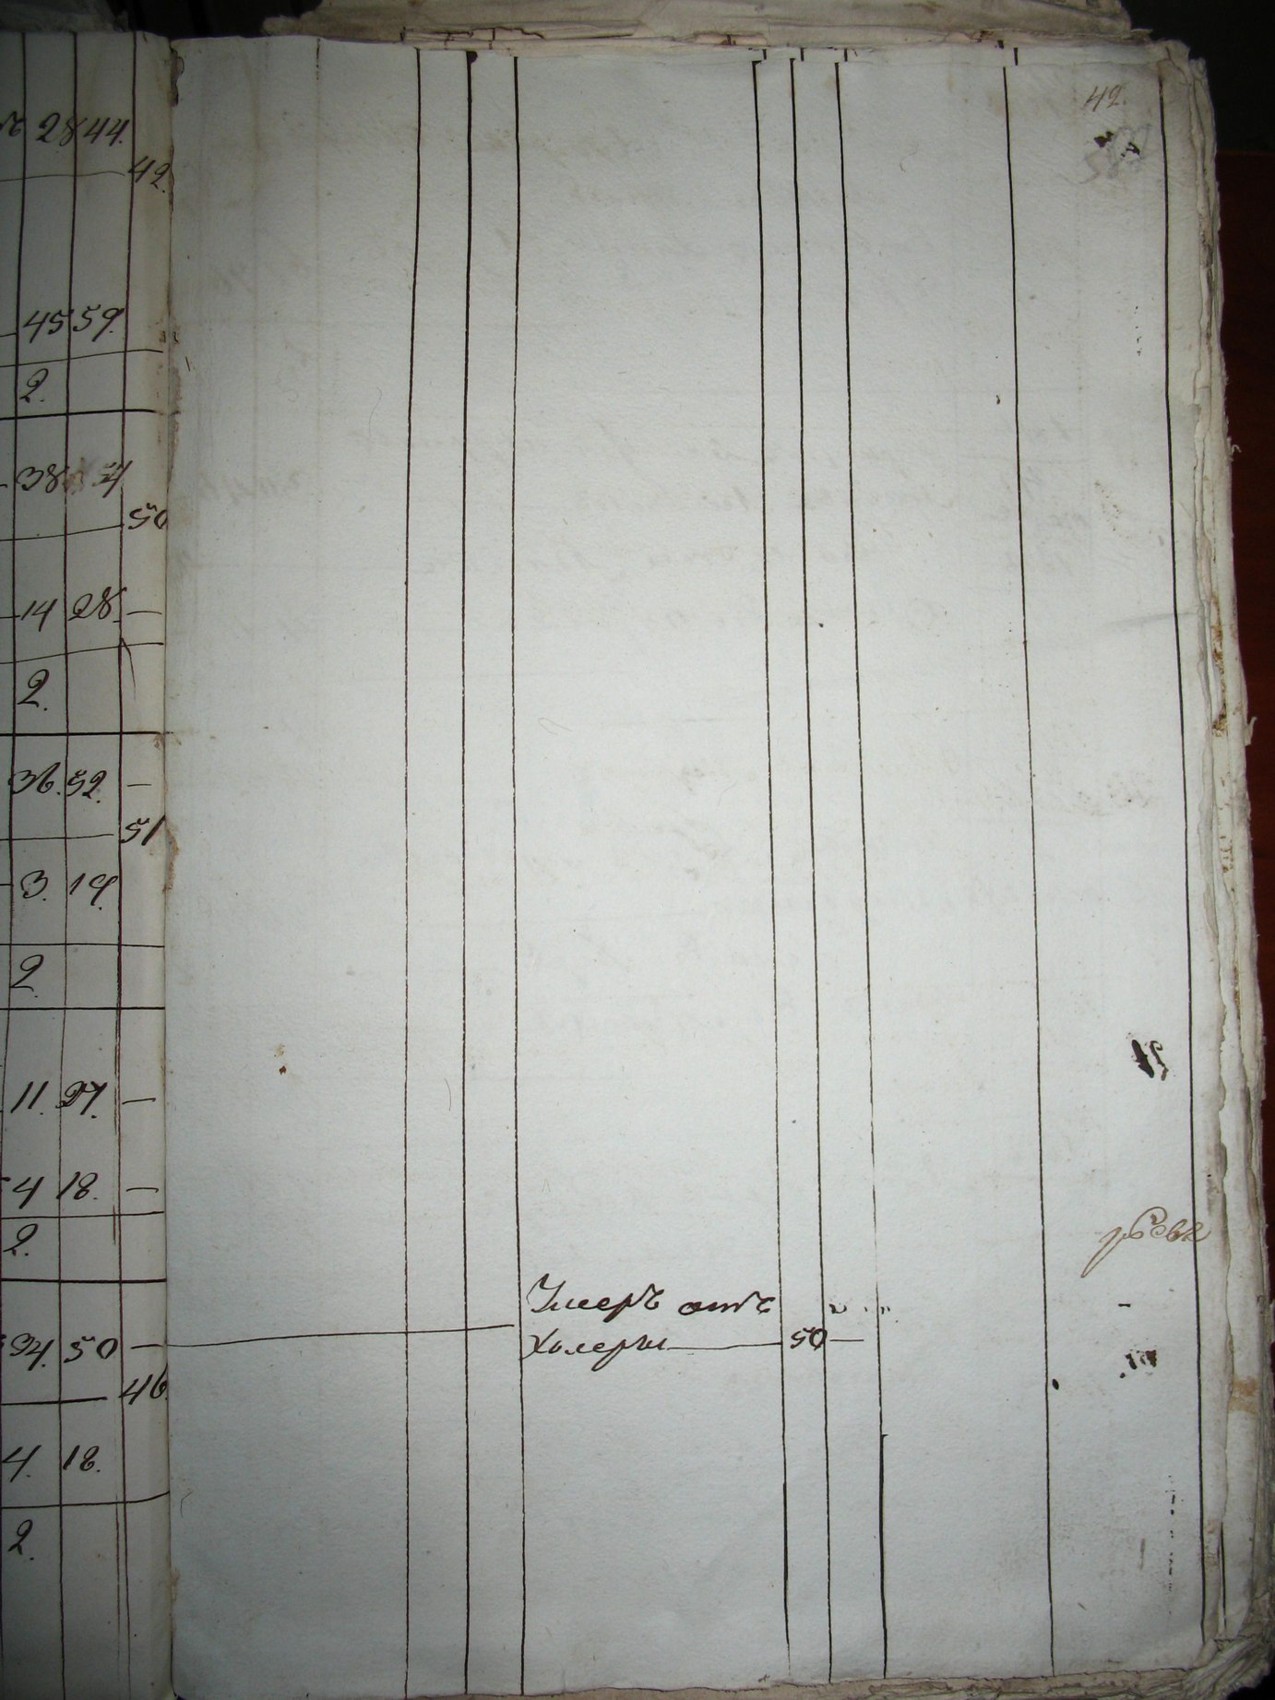 42.
28 44.
42.
45 59.
2.
38
50
14 28. —
2.
36. 52. —
51
3. 19.
2.
11. 27. —
4 18. —
2.
Умеръ отъ
Холеры — 50 —
24. 50 —
46.
4. 18.
2.